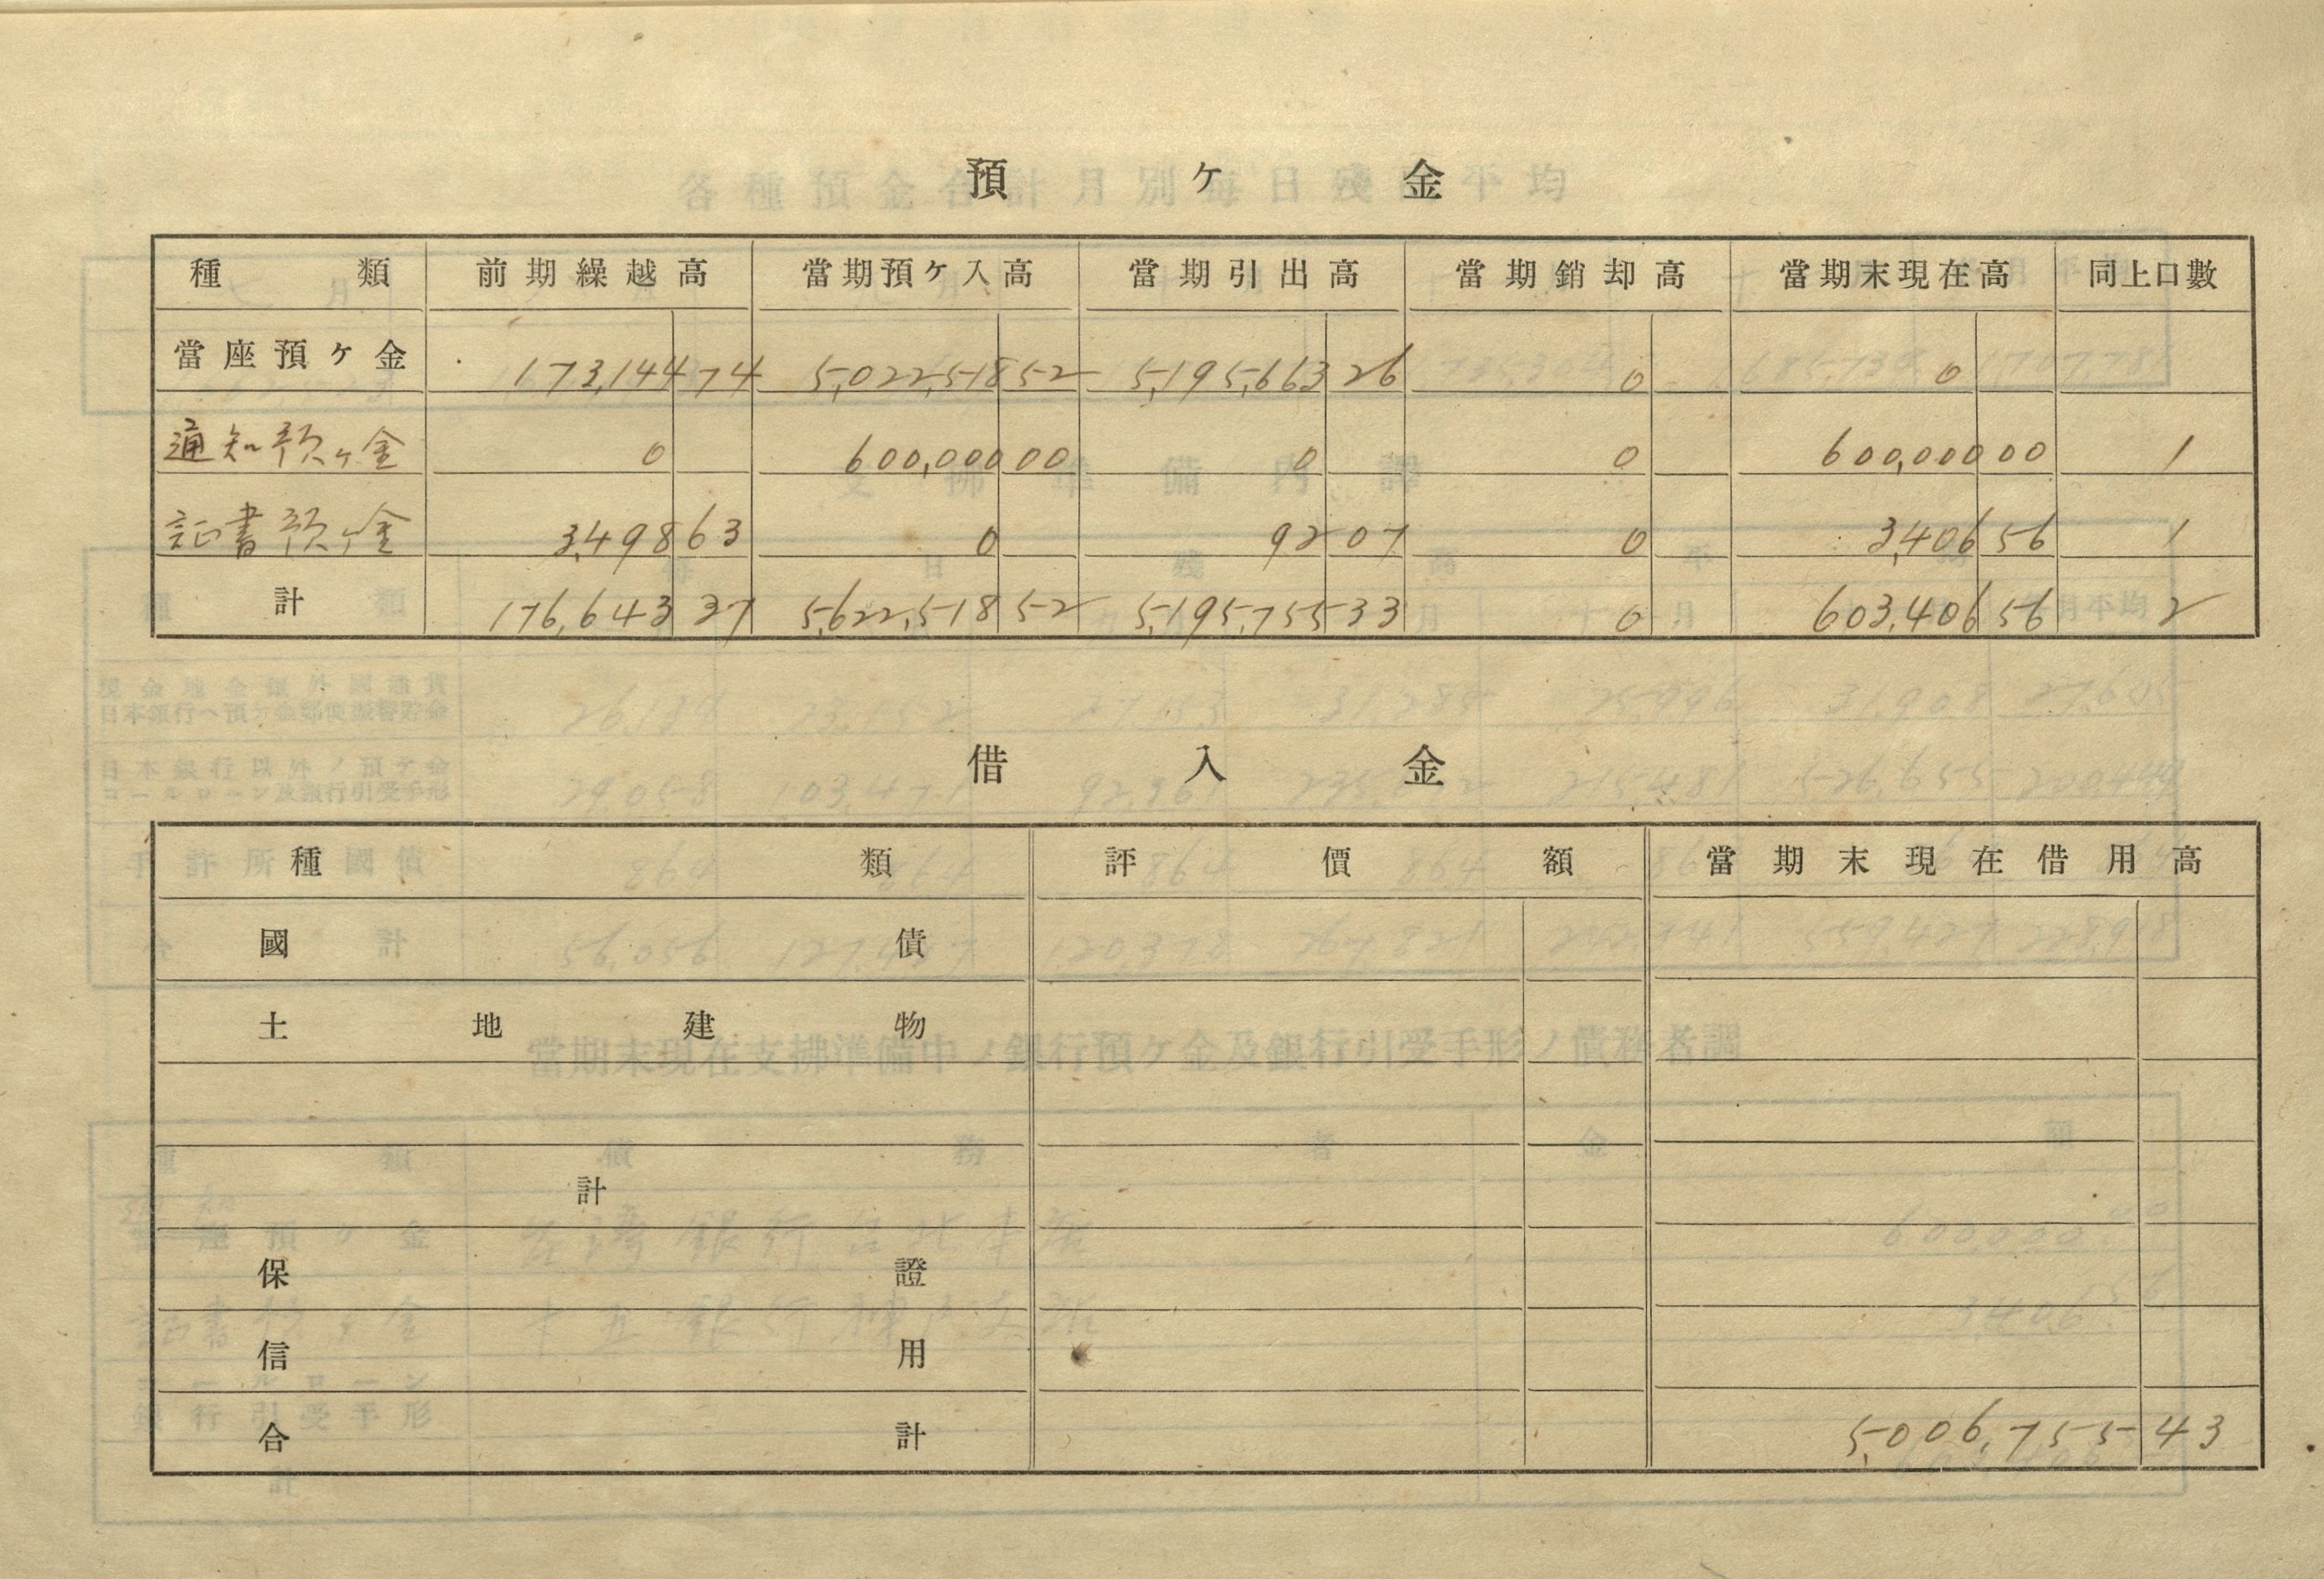 預ケ金
種類 前期繰越高 當期預ケ入高 當期引出高 當期銷却高 當期末現在高 同上口數
當座預ケ金 173,144 74 5,022,518 52 5,195,663 26 0 0
通知預ケ金 0 600,000 00 0 0 600,000 00 1
証書預ケ金 3,498 63 0 92 07 0 3,406 56 1
計 176,643 37 5,622,518 52 5,195,755 33 0 603,406 56 2
借入金
種類 評價額 當期末現在借用高
國債
土地建物
計
保證
信用
合計 5,006,755 43